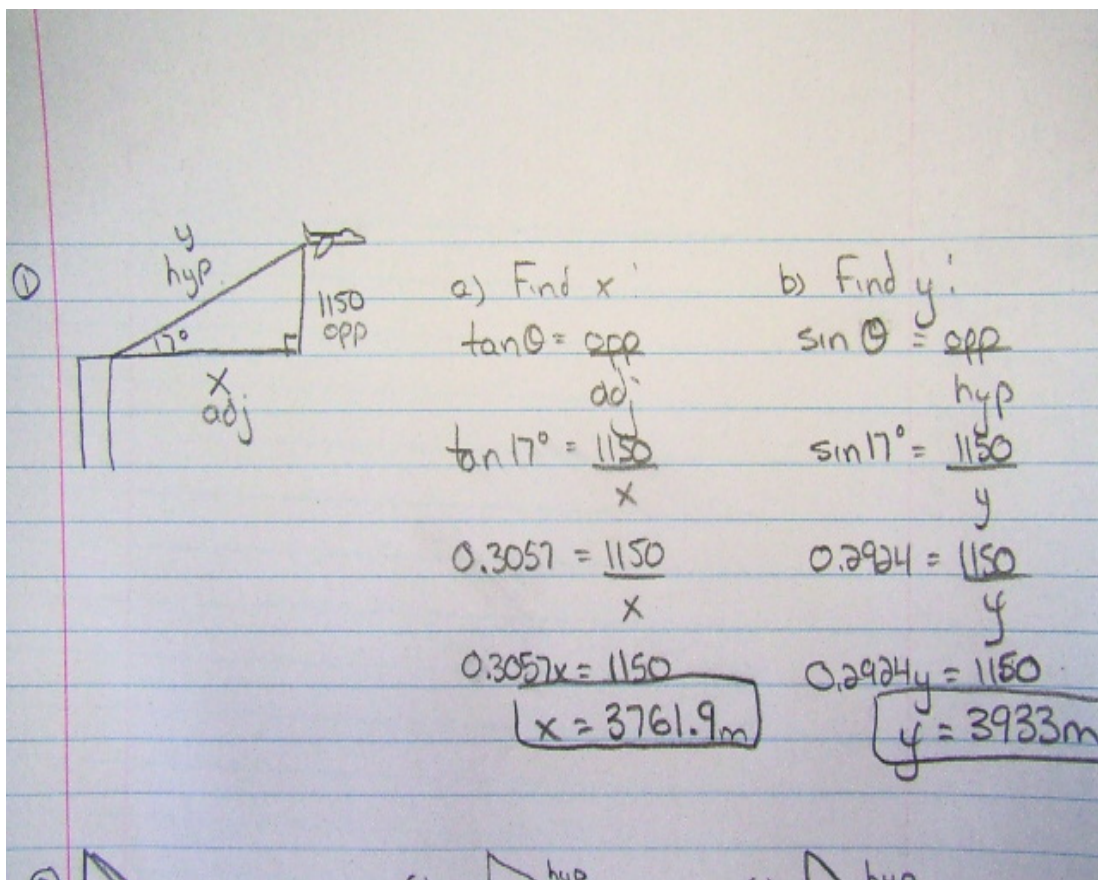 ①
y
hyp
17°
1150
opp
x
adj
a) Find x:
tanθ = opp
adj
tan 17° = 1150
x
0.3057 = 1150
x
0.3057x = 1150
x = 3761.9m
b) Find y:
sin θ = opp
hyp
sin 17° = 1150
y
0.2924 = 1150
y
0.2924y = 1150
y = 3933m
hyp
hyp